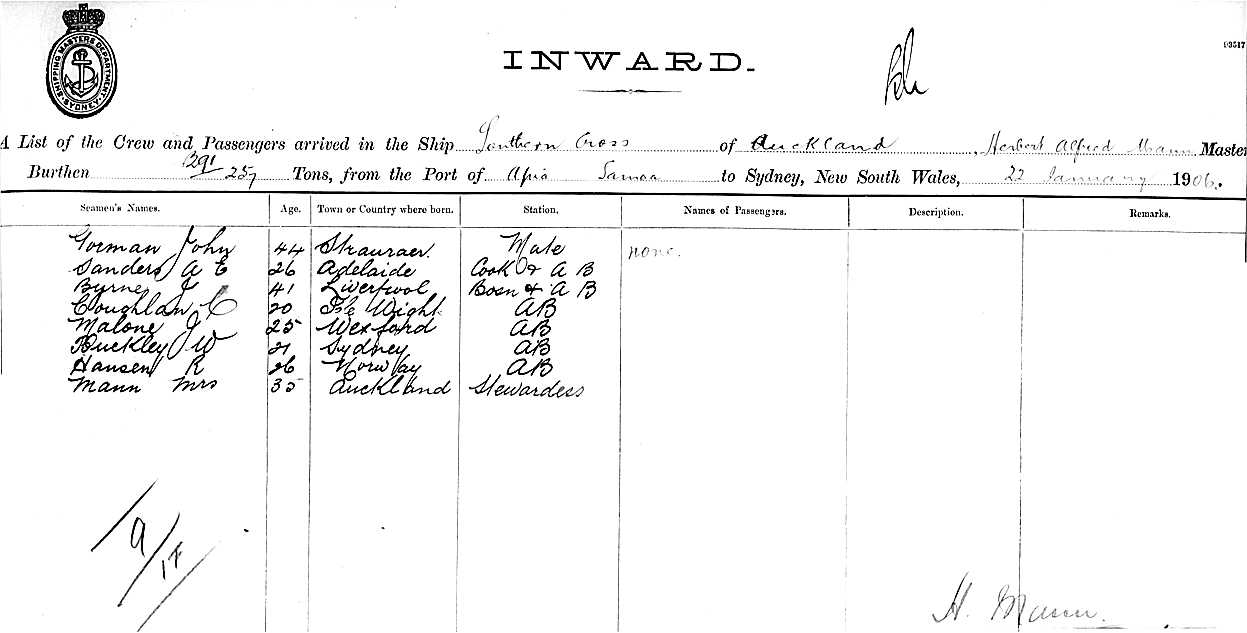 SHIPPING MASTERS DEPARTMENT SYDNEY
INWARD.
93517
A List of the Crew and Passengers arrived in the Ship Southern Cross of Auckland, Herbert Alfred Mann Master
Burthen 291/257 Tons, from the Port of Apia Samoa to Sydney, New South Wales, 22 January 1906.
Seamen's Names. Age. Town or Country where born. Station. Names of Passengers. Description. Remarks.
Gorman John 44 Stranraer. Mate none.
Sanders A E 26 Adelaide Cook & A B
Byrne J 41 Liverpool Bosn & A B
Coughlan C 20 Isle Wight AB
Malone J 25 Wexford AB
Huckley J W 21 Sydney AB
Hansen R 26 Norway AB
Mann Mrs 35 Auckland Stewardess
9/1F
H. Mann.